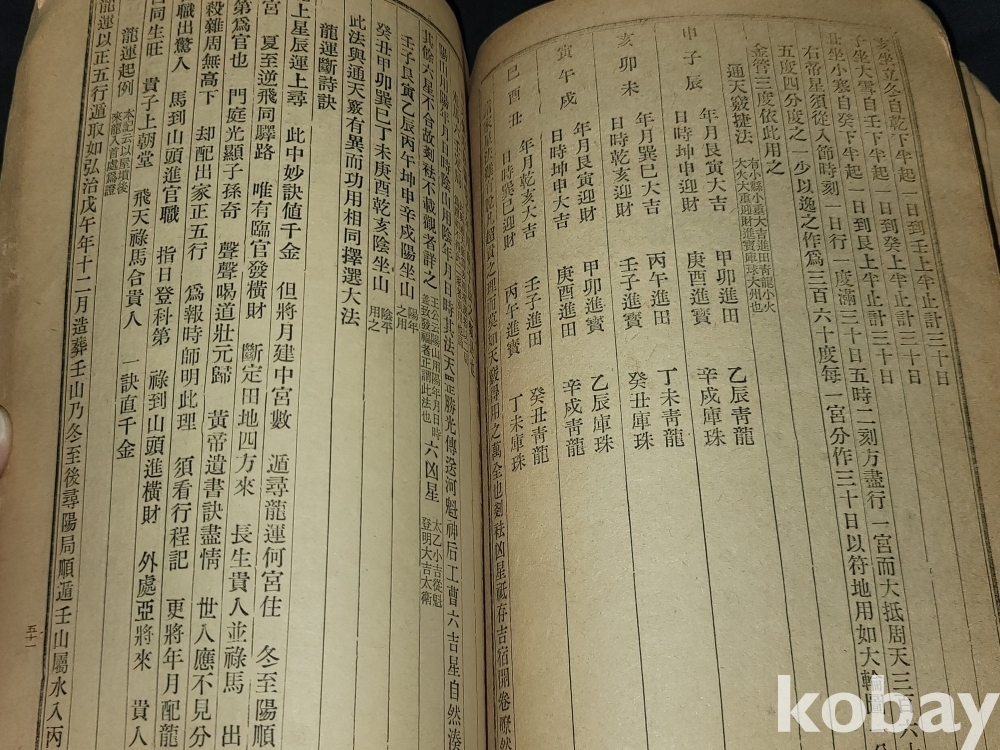 亥坐立冬自乾下半起一日到壬上半止計三十日
子坐大雪自壬下半起一日到癸上半止計三十日
丑坐小寒自癸下半起一日到艮上半止計三十日
右帝星須從入節時刻一日行一度滿三十日五時二刻方盡行一宮而大抵周天三百六
五度四分度之一少以逸之作爲三百六十度每一宮分作三十日以符地用如大輪圖
金管三度依此用之
通天竅捷法
有小縣小重大吉進田靑龍小火
大火大重迎財進寶庫珠大州也
申子辰 年月艮寅大吉 甲卯進田 乙辰靑龍
日時坤申迎財 庚酉進寶 辛戌庫珠
亥卯未 年月巽巳大吉 丙午進田 丁未靑龍
日時乾亥迎財 壬子進寶 癸丑庫珠
寅午戌 年月坤申大吉 庚酉進田 辛戌靑龍
日時艮寅迎財 甲卯進寶 乙辰庫珠
巳酉丑 年月乾亥大吉 壬子進田 癸丑靑龍
日時巽巳迎財 丙午進寶 丁未庫珠
之理而莫如天竅得用之萬全也剋祛凶星祇存吉宿開卷瞭然
時此法天罡勝光傳送河魁神后工曹六吉星自然湊
王公云陽山用陽年月日時
蓋致發福者正謂此法也
六凶星
太乙小吉從魁
登明大吉太衝
其餘六星不合故剋祛不載觀者詳之
壬子艮寅乙辰丙午坤申辛戌陽坐山
陽年
之用
癸丑甲卯巽巳丁未庚酉乾亥陰坐山
陰平
用之
此法與通天竅有異而功用相同擇選大法
龍運斷詩訣
上星辰運上尋 此中妙訣値千金 但將月建中宮數 遁尋龍運何宮住 冬至陽順
宮 夏至逆飛同驛路 唯有臨官發橫財 斷定田地四方來 長生貴人並祿馬 出
第爲官也 門庭光顯子孫奇 聲聲喝道壯元歸 黃帝遺書訣盡情 世人應不見分
殺雜周無高下 却配出家正五行 爲報時師明此理 須看行程記 更將年月配龍
職出驚人 馬到山頭進官職 指日登科第 祿到山頭進橫財 外處亞將來 貴人
同生旺 貴子上朝堂 飛天祿馬合貴人 一訣直千金
龍運起例
本記云以星墳後
來龍入首處爲證
龍運以正五行遁取如弘治戊午年十二月造葬壬山乃冬至後尋陽局順遁壬山屬水入丙
五十一
kobay